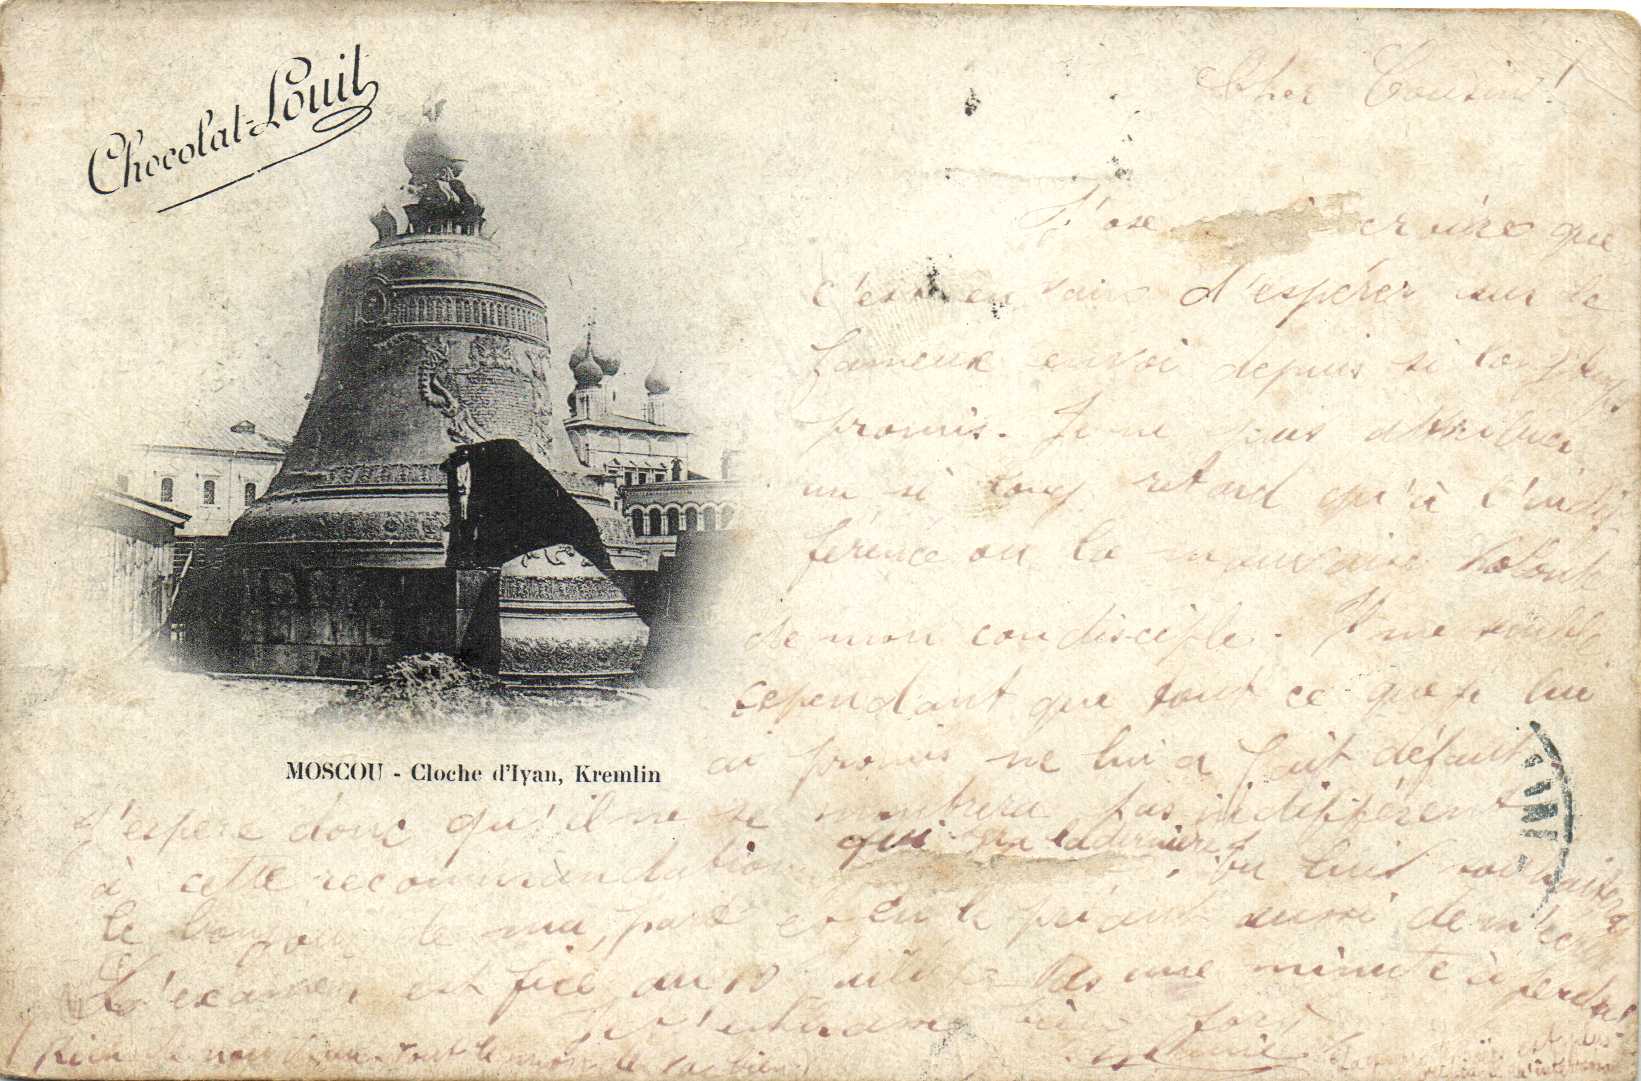 Chocolat-Louit
MOSCOU - Cloche d'Ivan, Kremlin
Cher Cousin!
J'ose à croire que
c'est en vain d'espérer sur le
fameux envoi depuis si longtemps
promis. Je ne puis attribuer
un si long retard qu'à l'indif
férence ou la mauvaise volonté
de mon condisciple. Il me semble
cependant que tout ce que je lui
ai promis ne lui a fait défaut
J'espère donc qu'il ne se montrera pas indifférent
à cette recommandation qui sera la dernière.
le bonjour de ma part et en le priant aussi de m'écrire
L'examen est fixé au 10 Juillet Pas une minute à perdre!
Je t'embrasse bien fort
(Rien de nouveau. Tout le monde va bien)